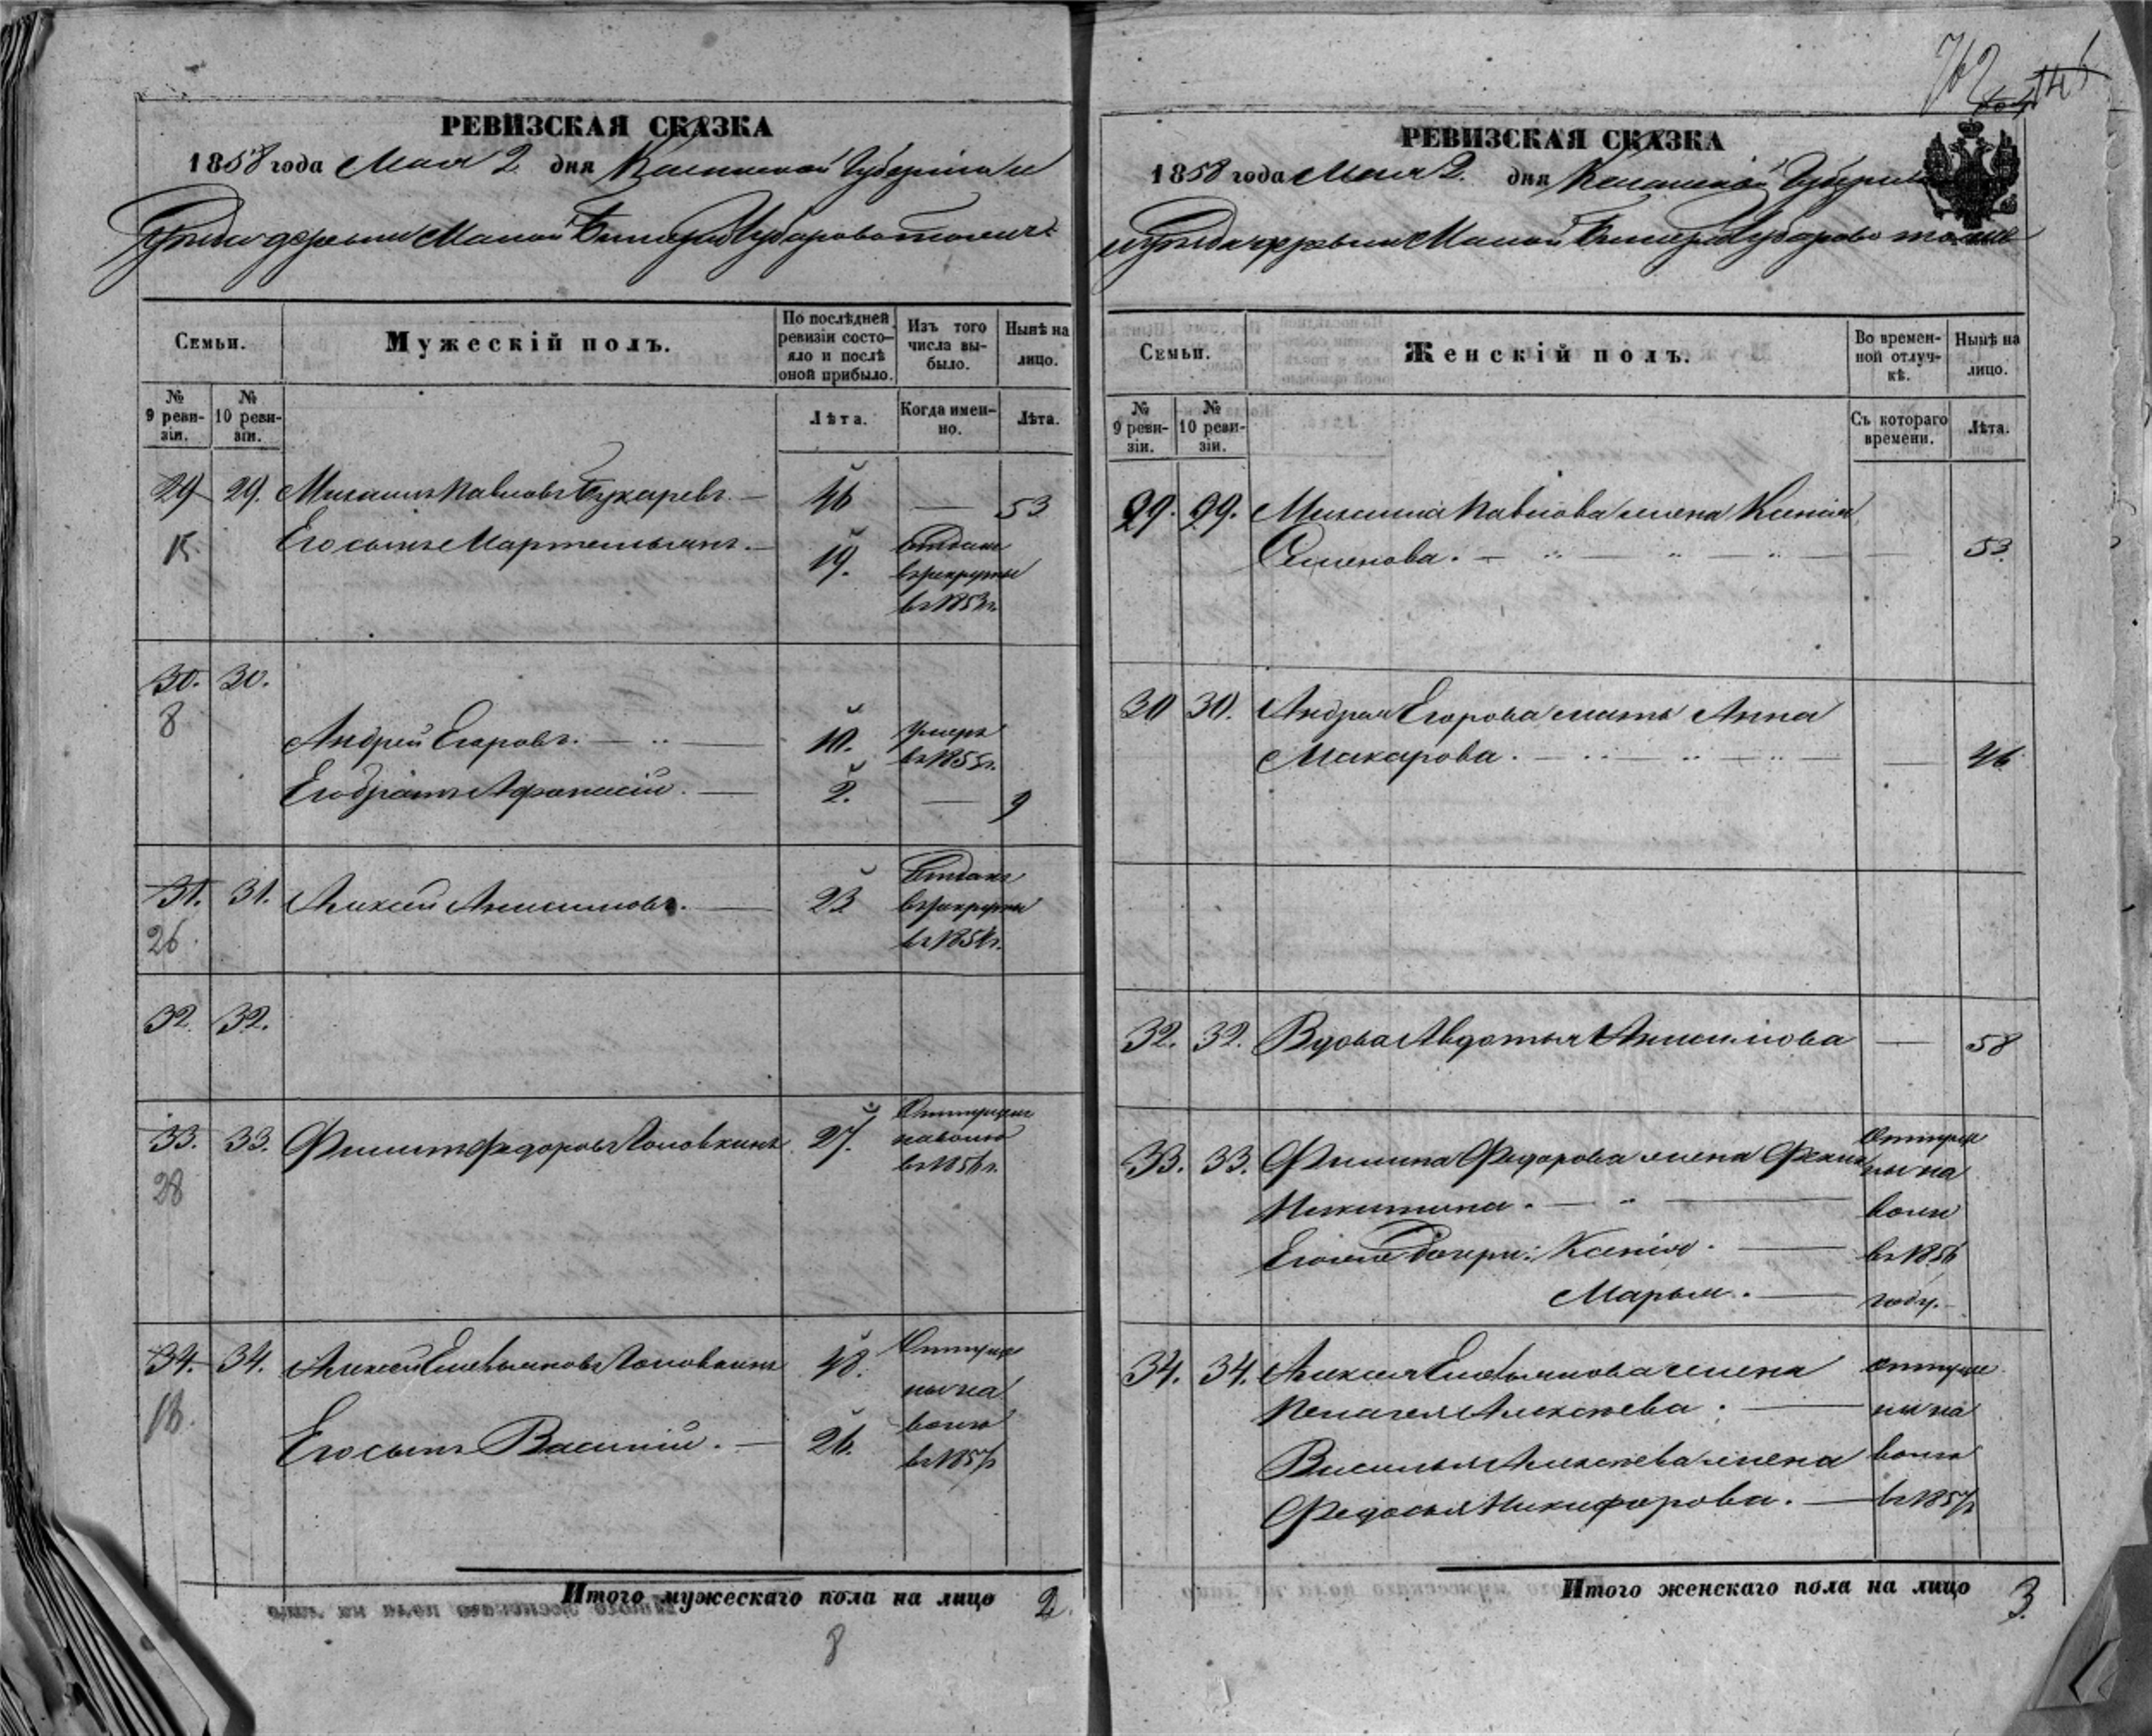 РЕВИЗСКАЯ СКАЗКА
1858 года Мая 2 дня Казанской Губерніи и
Уѣзда деревни Малой Чубарово тожъ
Семьи.
Мужескій полъ.
По послѣдней ревизіи состояло и послѣ оной прибыло.
Изъ того числа выбыло.
Нынѣ на лицо.
№ 9 ревизіи.
№ 10 ревизіи.
Лѣта.
Когда именно.
Лѣта.
29 29. Михаилъ Павловъ Бухаревъ. — 46 — 53
15. Его сынъ Мартемьянъ. — 19. Отданъ
въ рекруты
въ 1853 г.
30. 30.
8
Андрей Егоровъ. — 10. умеръ
въ 1855 г.
Его братъ Афанасій. — 2. — 9
31. 31. Алексей Анисимовъ. — 23 Отданъ
26. въ рекруты
въ 1854 г.
32. 32.
33. 33. Филипъ Федоровъ Головкинъ 27. Отпущенъ
28 на волю
въ 1856 г.
34. 34. Алексей Емельяновъ Головкинъ 48. Отпуще
16. ны на
волю
Его сынъ Василий. — 26. въ 1857 г
Итого мужескаго пола на лицо 2.
8
762
146
РЕВИЗСКАЯ СКАЗКА
1858 года Мая 2. дня Казанской Губерніи
и уѣзда деревни Малой Чубарово тожъ
Семьи.
Женскій полъ.
Во временной отлучкѣ.
Нынѣ на лицо.
№ 9 ревизіи.
№ 10 ревизіи.
Съ котораго времени.
Лѣта.
29. 29. Михаила Павлова жена Ксенія
Семенова. — — 53.
30 30. Андрея Егорова мать Анна
Макарова. — — 46
32. 32. Вдова Авдотья Анисимова — 58
33. 33. Филипа Федорова жена Отпуще
Никитина. — ны на
волю
Его же дочери: Ксенія. — въ 1856
Марья. — году.
34. 34. Алексея Емельянова жена Отпуще
Пелагея Алексѣева. — ны на
Василья Алексѣева жена волю
Федосья Никифорова. — въ 1857 г
Итого женскаго пола на лицо 3.